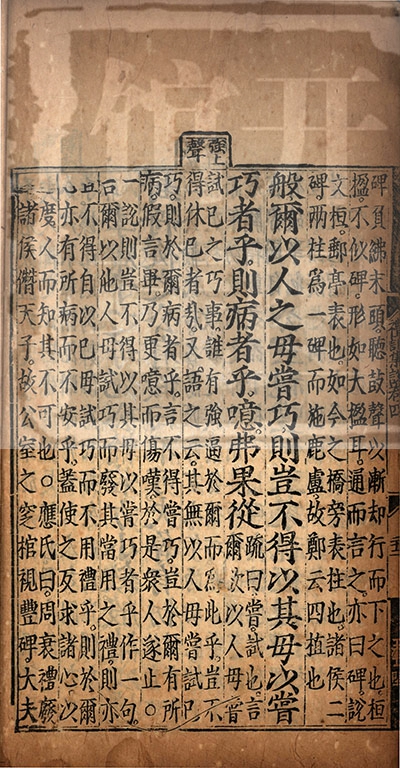 強上聲
碑負紼末頭。聽鼓聲以漸却行而下之也。桓
楹。不似碑。形如大楹耳。通而言之。亦曰碑。說
文。桓。郵亭表也。如今之橋旁表柱也。諸侯二
碑。兩柱爲一碑。而施鹿盧。故鄭云四植也
般。爾以人之母嘗巧。則豈不得以其母以嘗
巧者乎。則病者乎。噫。弗果從。
疏曰。嘗。試也。言
爾欲以人母嘗
試已之巧事。誰有強逼於爾而爲此乎。豈不
得休已者哉。又語之云。其無以人母嘗試已
巧。則於爾病者乎。言不得嘗巧。豈於爾有所
病。假言畢。乃更噫而傷嘆。於是衆人遂止。○
一說。則豈不得以其母以嘗巧者乎。作一句。
言爾以他人母試巧。而廢其當用之禮。則亦
豈不得自以已母試巧。而不用禮乎。則於爾
心亦有所病而不安乎。蓋使之反求諸心。以
己度人。而知其不可也。○應氏曰。周衰禮廢
諸侯僭天子。故公室之窆棺視豐碑。大夫